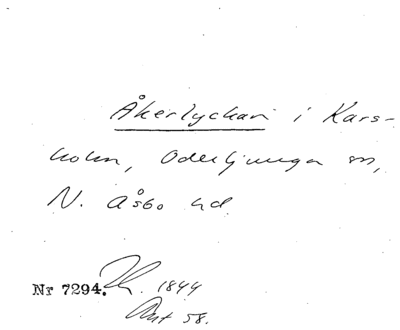 Åkerlyckan i Kars-
holm, Oderljunga sn,
N. Åsbo hd
Nr 7294. 1844
Akt 58.